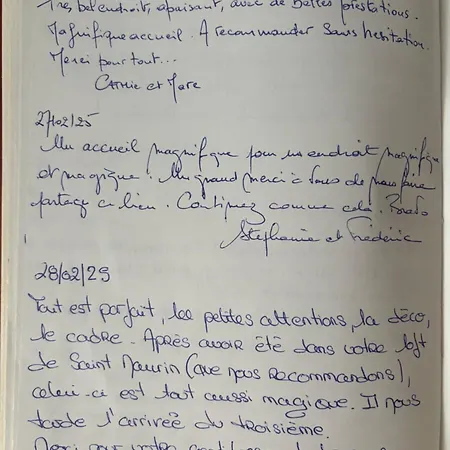 Très bel endroit, apaisant, avec de Belles prestations.
Magnifique accueil. A recommander sans hésitation.
Merci pour tout...
Cathie et Marc
27/02/25
Un accueil magnifique pour un endroit magnifique
et magique. Un grand merci à vous de nous faire
partager ce lieu. Continuez comme cela. Bravo
Stéphanie et Frédéric
28/02/25
Tout est parfait, les petites attentions, la déco,
le cadre. Après avoir été dans votre loft
de Saint Maurin (que nous recommandons),
celui-ci est tout aussi magique. Il nous
tarde l'arrivée du troisième.
Merci pour votre